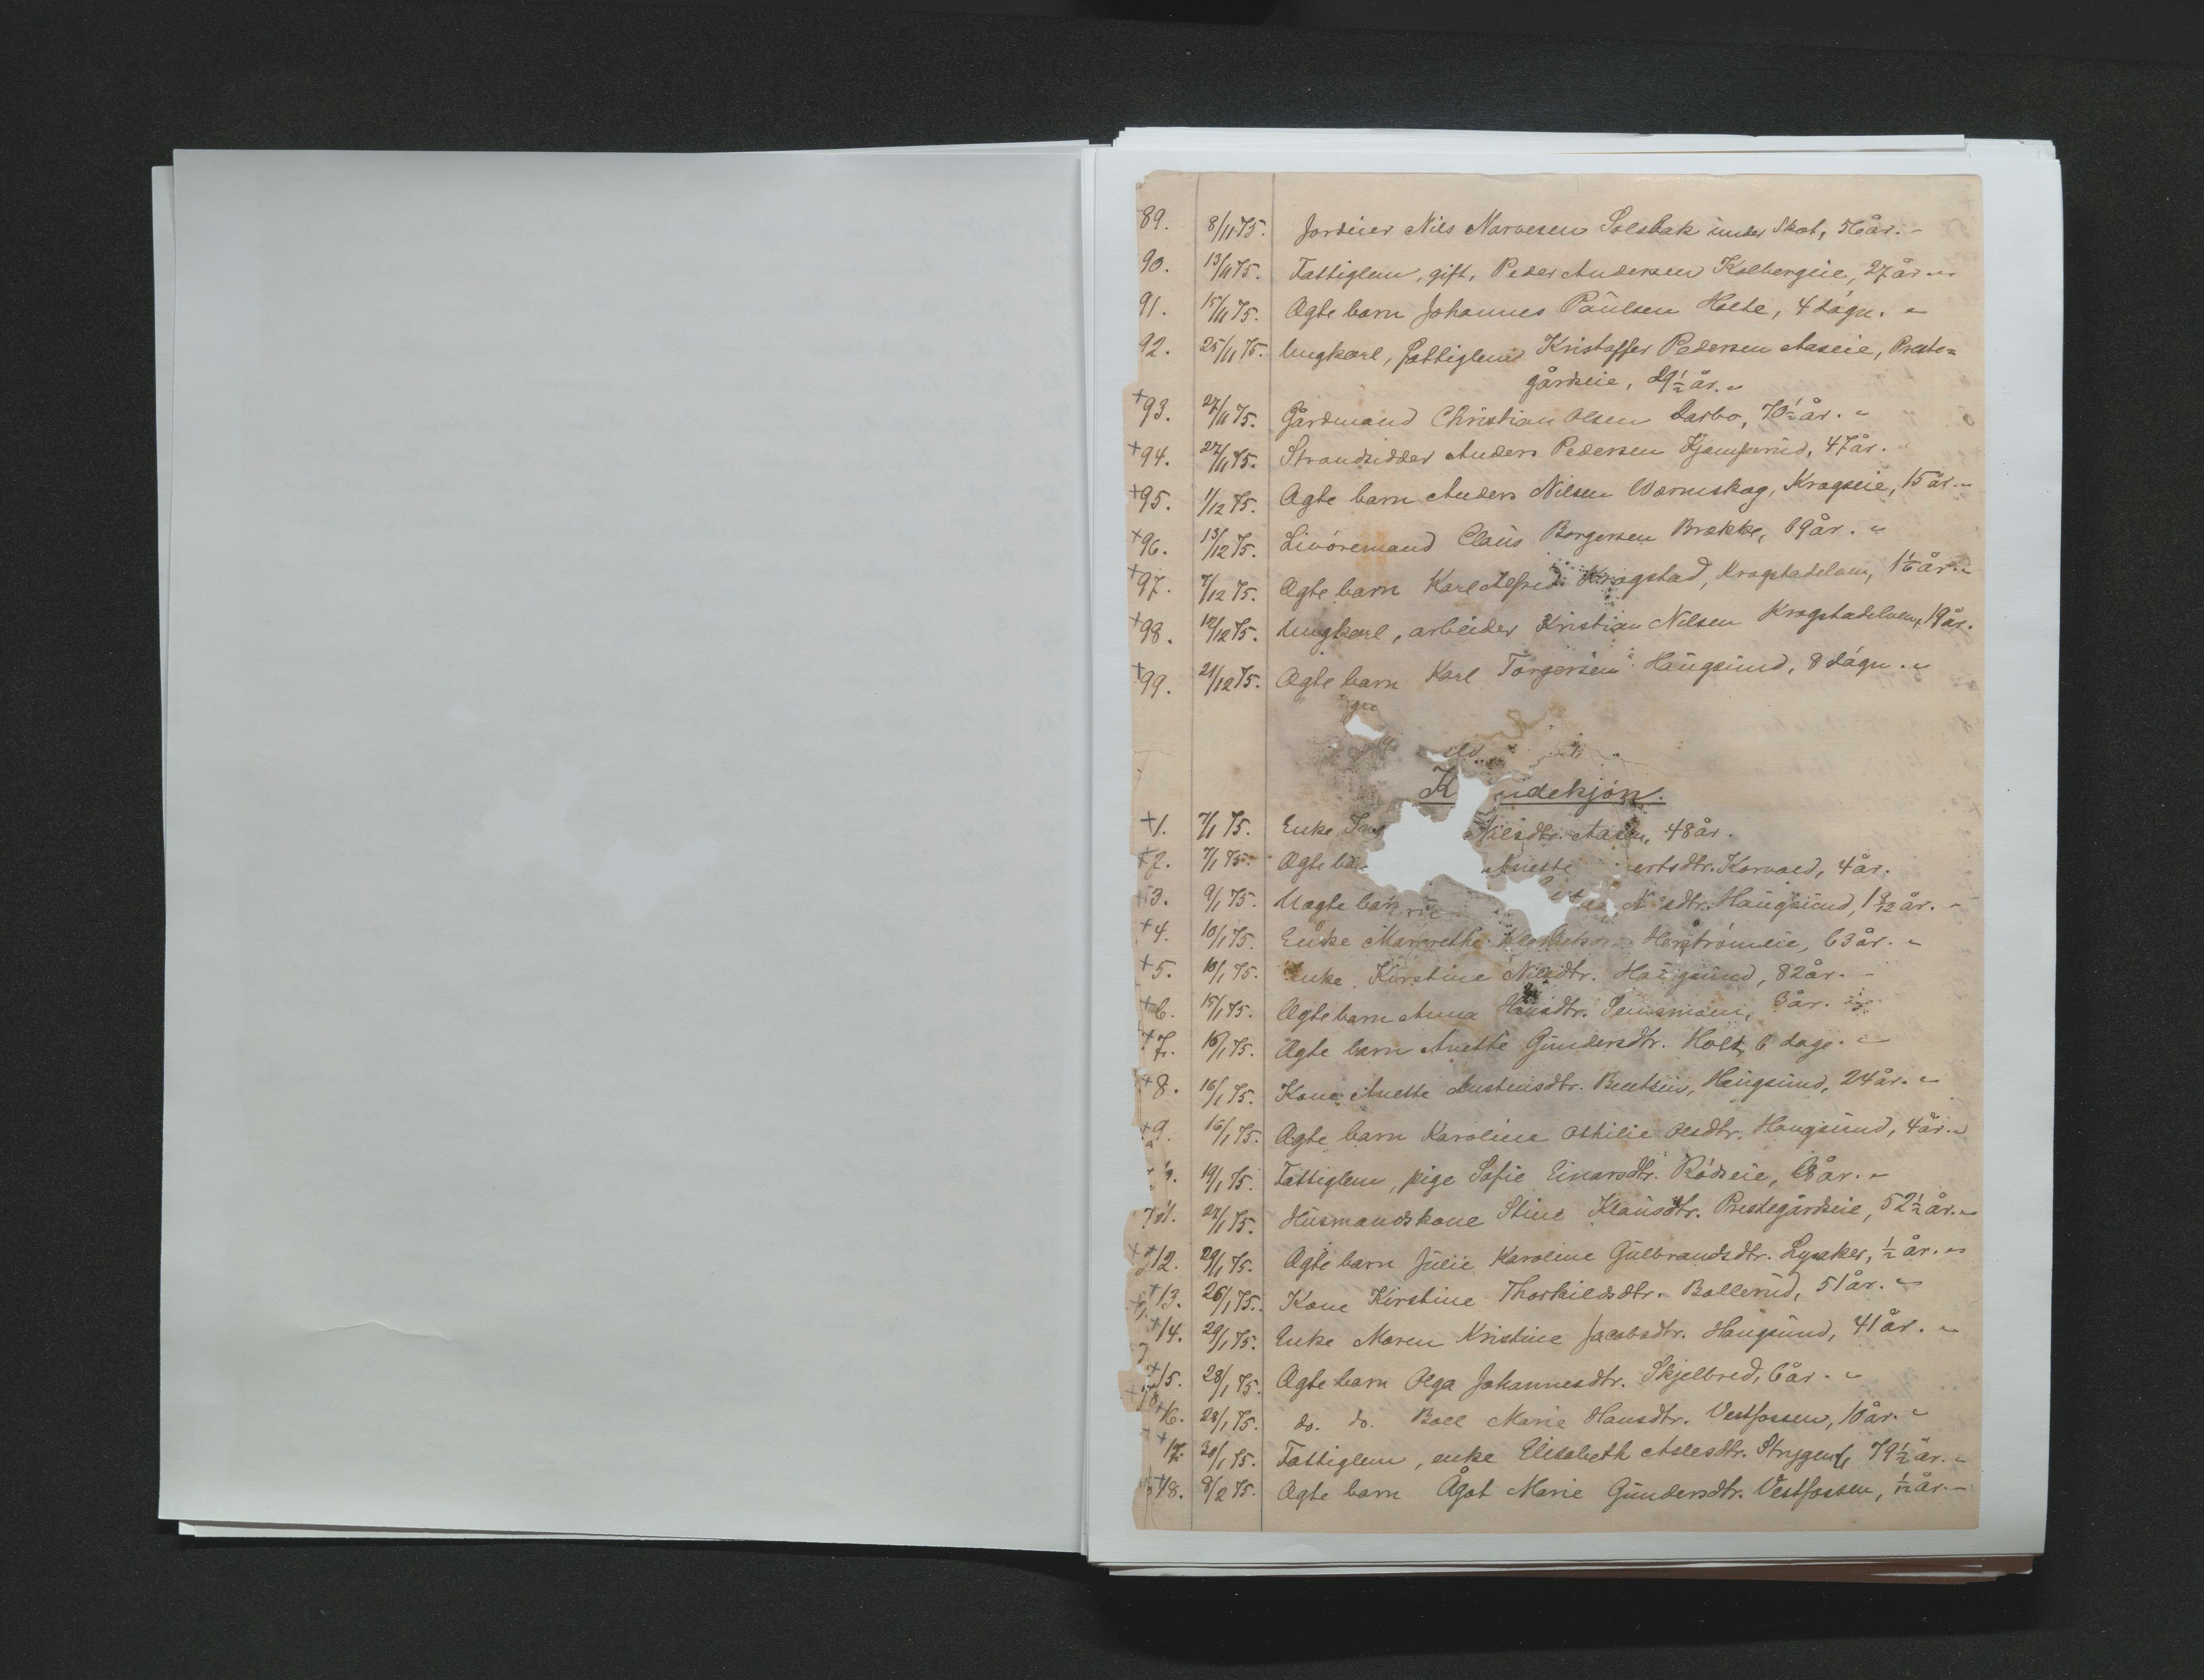 89. 8/11 75. Jordeier Nils Narvesen Solsbak under Skot, 56 år. "
90. 13/11 75. Fattiglem, gift, Peder Andersen Kolbergeie, 27 år "
91. 15/11 75. Ægte barn Johannes Paulsen Holte, 4 døgn. "
92. 25/11 75. Ungkarl, fattiglem Kristoffer Pedersen Aaseie, Preste=
gårdseie, 29 1/2 år. "
+93. 27/11 75. Gårdmand Christian Olsen Darbo, 70 1/2 år. "
+94. 27/11 75. Strandsidder Anders Pedersen Kjemperud, 47 år. "
+95. 1/12 75. Ægte barn Anders Nilsen Wormskog, Krogseie, 15 år "
+96. 13/12 75. Livøremand Claus Borgersen Brække, 69 år. "
+97. 7/12 75. Ægte barn Karl Alfred Krogstad, Krogstadelven, 1 1/6 år. "
+98. 12/75. Ungkarl, arbeider Kristian Nilsen Krogstadelven, 19 år.
+99. 21/12 75. Ægte barn Karl Torgersen Haugsund, 8 døgn. "
K indekjøn.
+1. 7/1 75. Enke Nilsdtr. Aasen, 48 år.
+2. 7/1 75. Ægte ba Anette ertsdtr. Korvald, 4 år.
+3. 9/1 75. Uægte barn sdtr. Haugsund, 1 9/12 år. "
+4. 10/1 75. Enke Margrethe Hergstrømeie, 63 år. "
+5. 10/1 75. Enke Kirstine Nilsdtr. Haugsund, 82 år. "
+6. 15/1 75. Ægte barn Anna Hansdtr. 3 år. "
+7. 16/1 75. Ægte barn Anette Gundersdtr. Holt, 6 dage. "
+8. 16/1 75. Kone Anette Austensdtr. Bentsen, Haugsund, 24 år. "
+9. 16/1 75. Ægte barn Karoline Othilie Olsdtr. Haugsund, 4 år. "
19/1 75. Fattiglem, pige Sofie Einarsdtr. Rødseie, 68 år. "
11. 27/1 75. Husmandskone Stine Klausdtr. Prestegårdseie, 52 1/2 år. "
+12. 29/1 75. Ægte barn Julie Karoline Gulbrandsdtr. Lysaker, 1/2 år. "
+13. 26/1 75. Kone Kirstine Thorkildsdtr. Bollerud, 51 år. "
+14. 29/1 75. Enke Maren Kristine Jacobsdtr. Haugsund, 41 år. "
+15. 28/1 75. Ægte barn Olga Johannesdtr. Skjelbred, 6 år. "
+16. 28/1 75. do. do. Boel Marie Hansdtr. Vestfossen, 10 år. "
+17. 30/1 75. Fattiglem, enke Elisabeth Aslesdtr. 79 1/2 år. "
+18. 8/2 75. Ægte barn Ågot Marie Gundersdtr. Vestfossen, 1/12 år. "